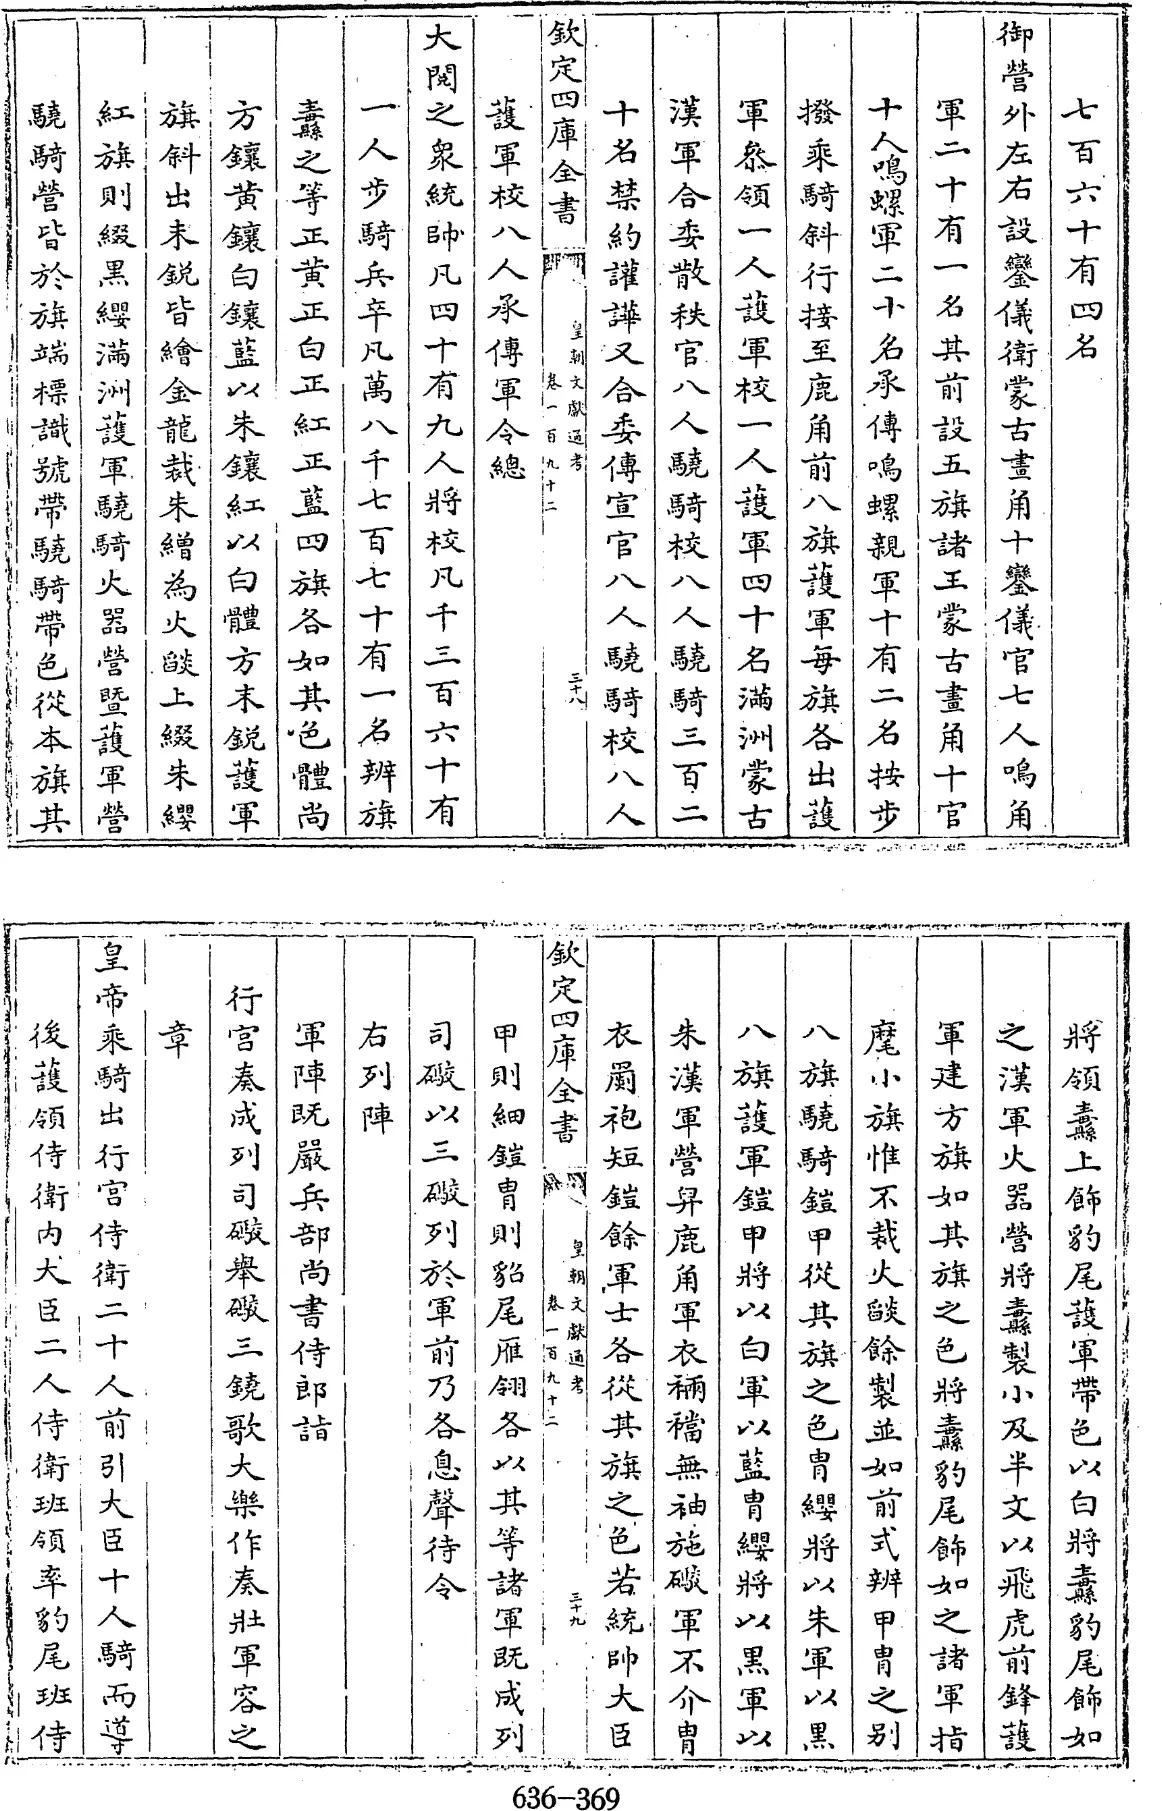 七百六十有四名
御營外左右設鑾儀衛蒙古畫角十鑾儀官七人鳴角
軍二十有一名其前設五旗諸王蒙古畫角十官
十人鳴螺軍二十名承傳鳴螺親軍十有二名按步
撥乘騎斜行接至鹿角前八旗護軍每旗各出護
軍叅領一人護軍校一人護軍四十名滿洲蒙古
漢軍合委散秩官八人驍騎校八人驍騎三百二
十名禁約讙譁又合委傳宣官八人驍騎校八人
欽定四庫全書
皇朝文獻通考
卷一百九十二
三十八
護軍校八人承傳軍令總
大閱之衆統帥凡四十有九人將校凡千三百六十有
一人步騎兵卒凡萬八千七百七十有一名辨旗
纛之等正黃正白正紅正藍四旗各如其色體尚
方鑲黃鑲白鑲藍以朱鑲紅以白體方末銳護軍
旗斜出末銳皆繪金龍裁朱繒為火燄上綴朱纓
紅旗則綴黑纓滿洲護軍驍騎火器營暨護軍營
驍騎營皆於旗端標識號帶驍騎帶色從本旗其
將領纛上飾豹尾護軍帶色以白將纛豹尾飾如
之漢軍火器營將纛製小及半文以飛虎前鋒護
軍建方旗如其旗之色將纛豹尾飾如之諸軍指
麾小旗惟不裁火燄餘製並如前式辨甲胄之别
八旗驍騎鎧甲從其旗之色胄纓將以朱軍以黑
八旗護軍鎧甲將以白軍以藍胄纓將以黑軍以
朱漢軍營舁鹿角軍衣裲襠無袖施礮軍不介胄
衣罽袍短鎧餘軍士各從其旗之色若統帥大臣
欽定四庫全書
皇朝文獻通考
卷一百九十二
三十九
甲則細鎧胄則貂尾雁翎各以其等諸軍既成列
司礮以三礮列於軍前乃各息聲待令
右列陣
軍陣既嚴兵部尚書侍郎詣
行宮奏成列司礮舉礮三鐃歌大樂作奏壯軍容之
章
皇帝乘騎出行宮侍衛二十人前引大臣十人騎而導
後護領侍衛内大臣二人侍衛班領率豹尾班侍
636-369